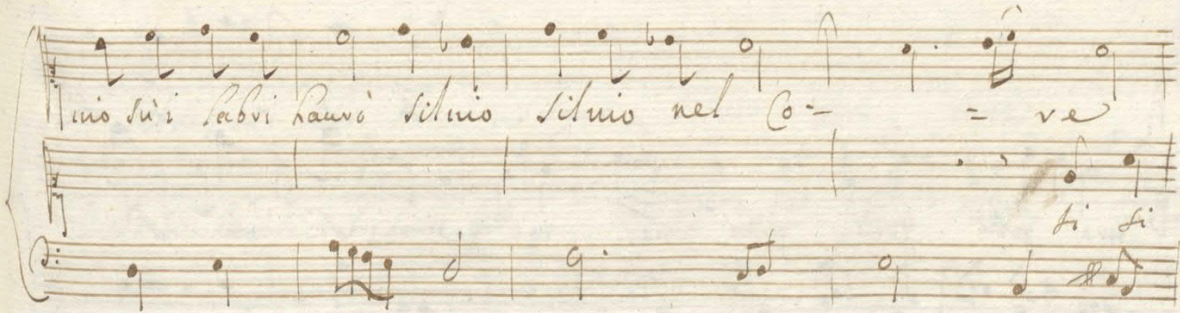 uio sù i labri haurò siluio siluio nel Co - = re
si si